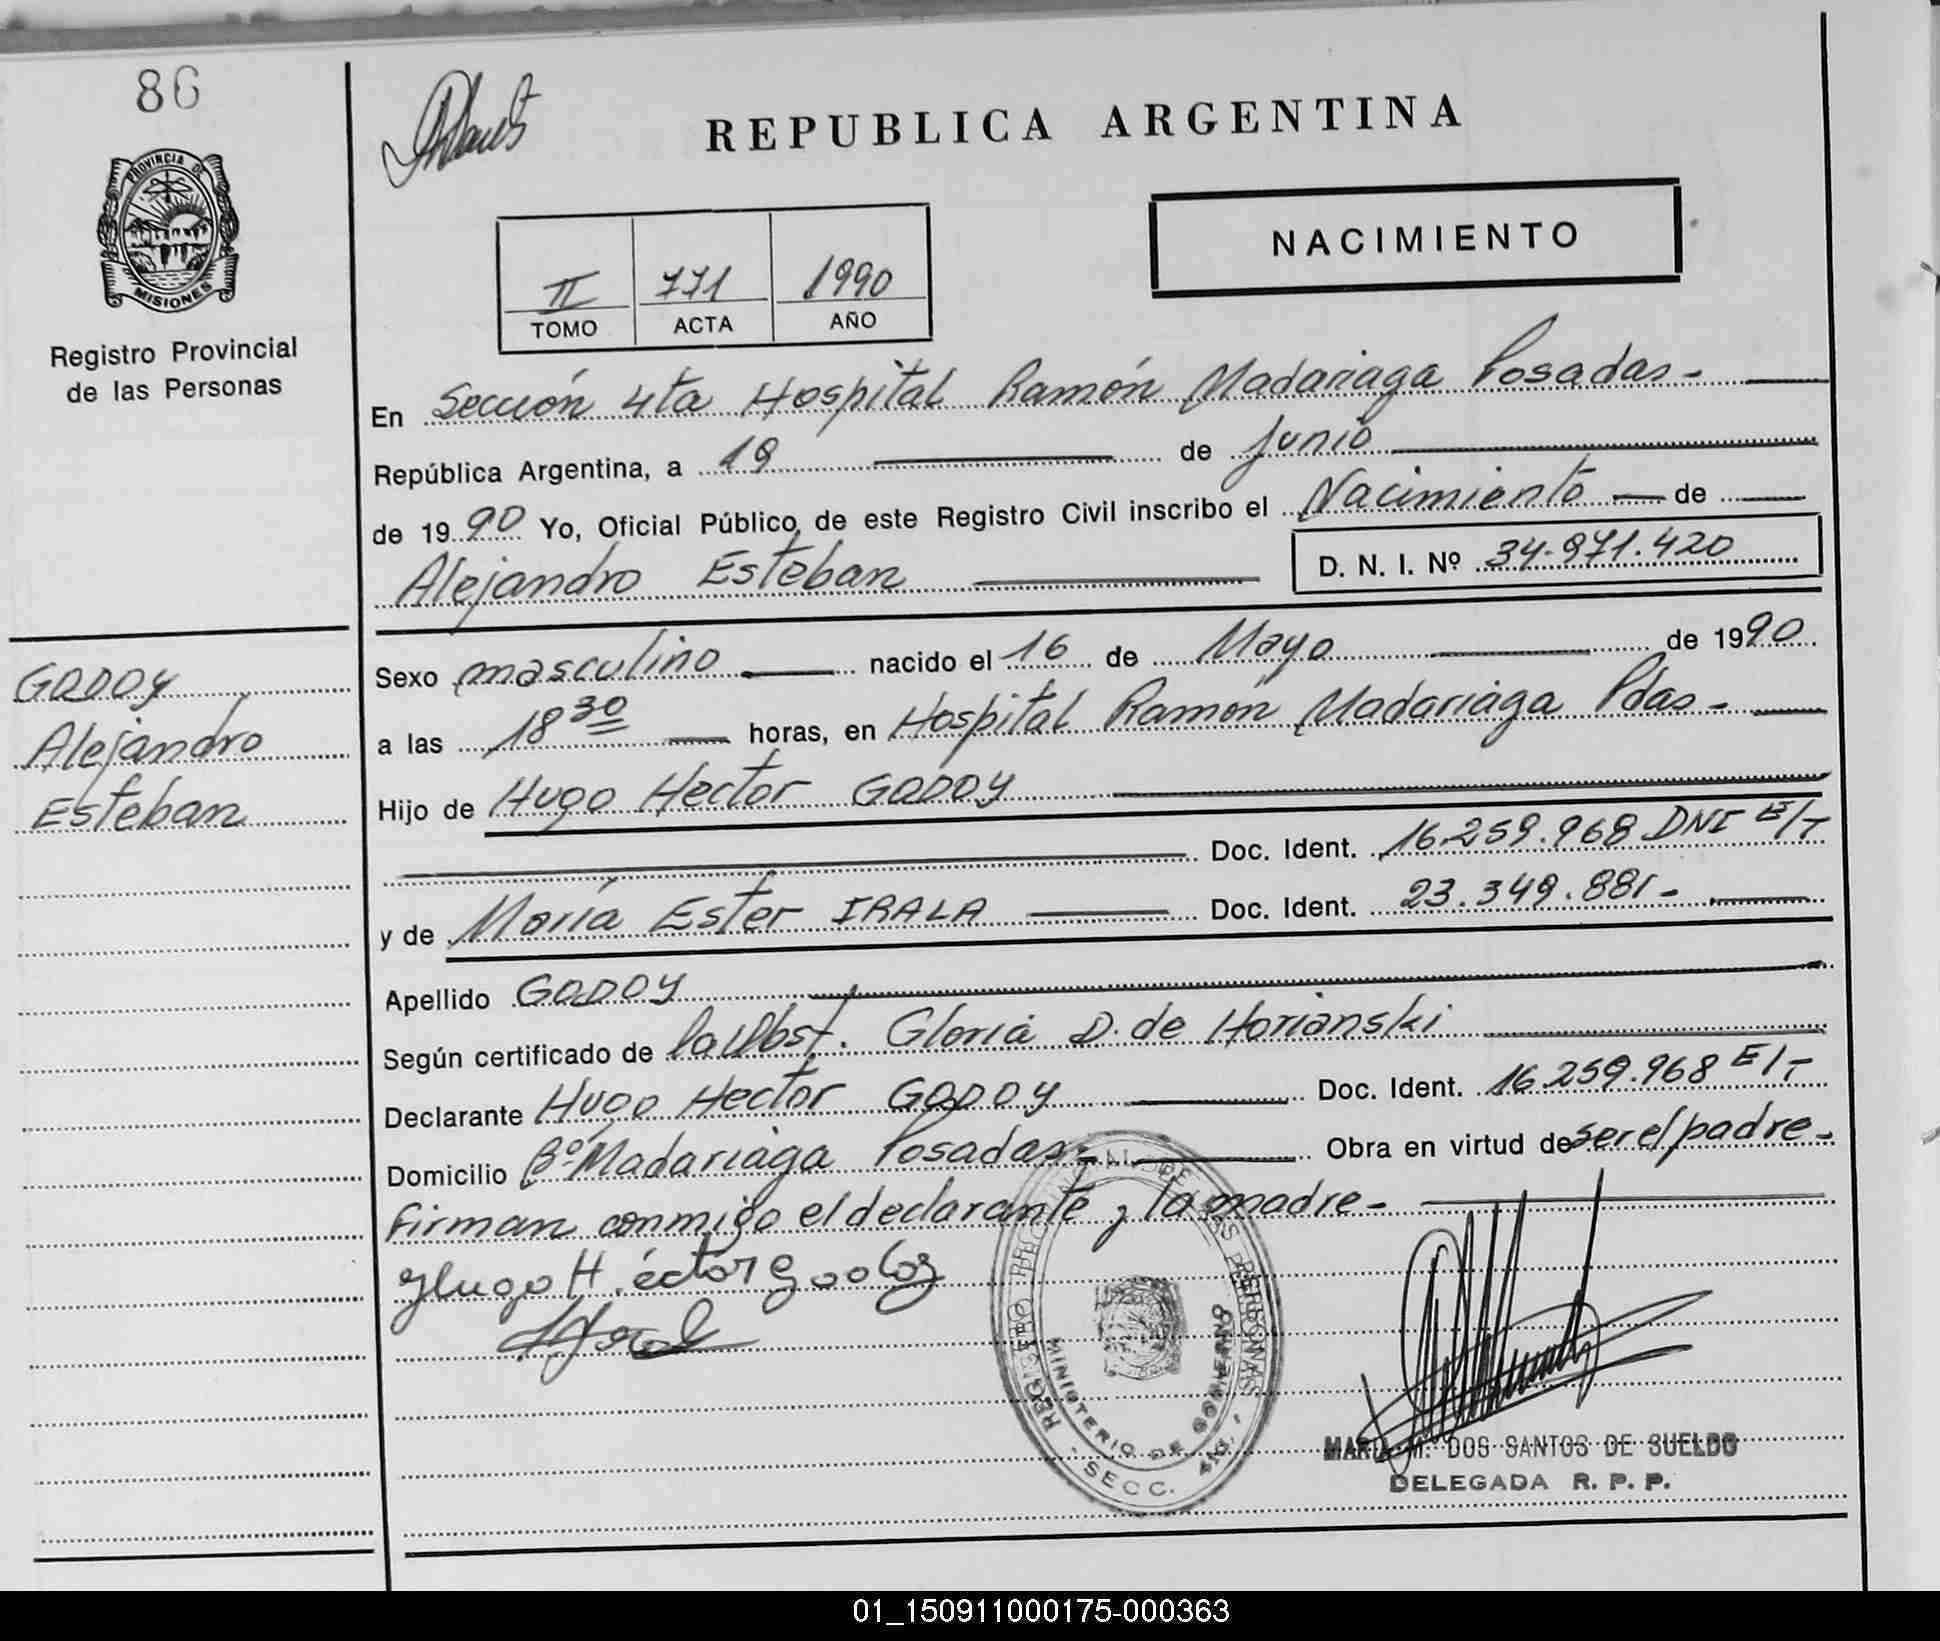 86
REPUBLICA ARGENTINA
PROVINCIA DE
MISIONES
Registro Provincial
de las Personas
NACIMIENTO
II 771 1990
TOMO ACTA AÑO
En Sección 4ta Hospital Ramón Madariaga Posadas-
República Argentina, a 19 de Junio
de 1990 Yo, Oficial Público de este Registro Civil inscribo el Nacimiento de
Alejandro Esteban
D. N. I. Nº 34.971.420
GODOY
Alejandro
Esteban
Sexo masculino nacido el 16 de Mayo de 1990
a las 18 30 horas, en Hospital Ramón Madariaga Pdas-
Hijo de Hugo Hector GODOY
Doc. Ident. 16.259.968 DNI E/T
y de María Ester IRALA Doc. Ident. 23.349.881-
Apellido GODOY
Según certificado de la Obst. Gloria D. de Horianski
Declarante Hugo Hector GODOY Doc. Ident. 16.259.968 E/T
Domicilio Bº Madariaga Posadas- Obra en virtud de ser el padre-
Firman conmigo el declarante y la madre-
Hugo Héctor Godoy
REGISTRO PROVINCIAL DE LAS PERSONAS
MINISTERIO DE GOBIERNO
SECC. 4ta.
M. DOS SANTOS DE SUELDO
DELEGADA R. P. P.
01_150911000175-000363